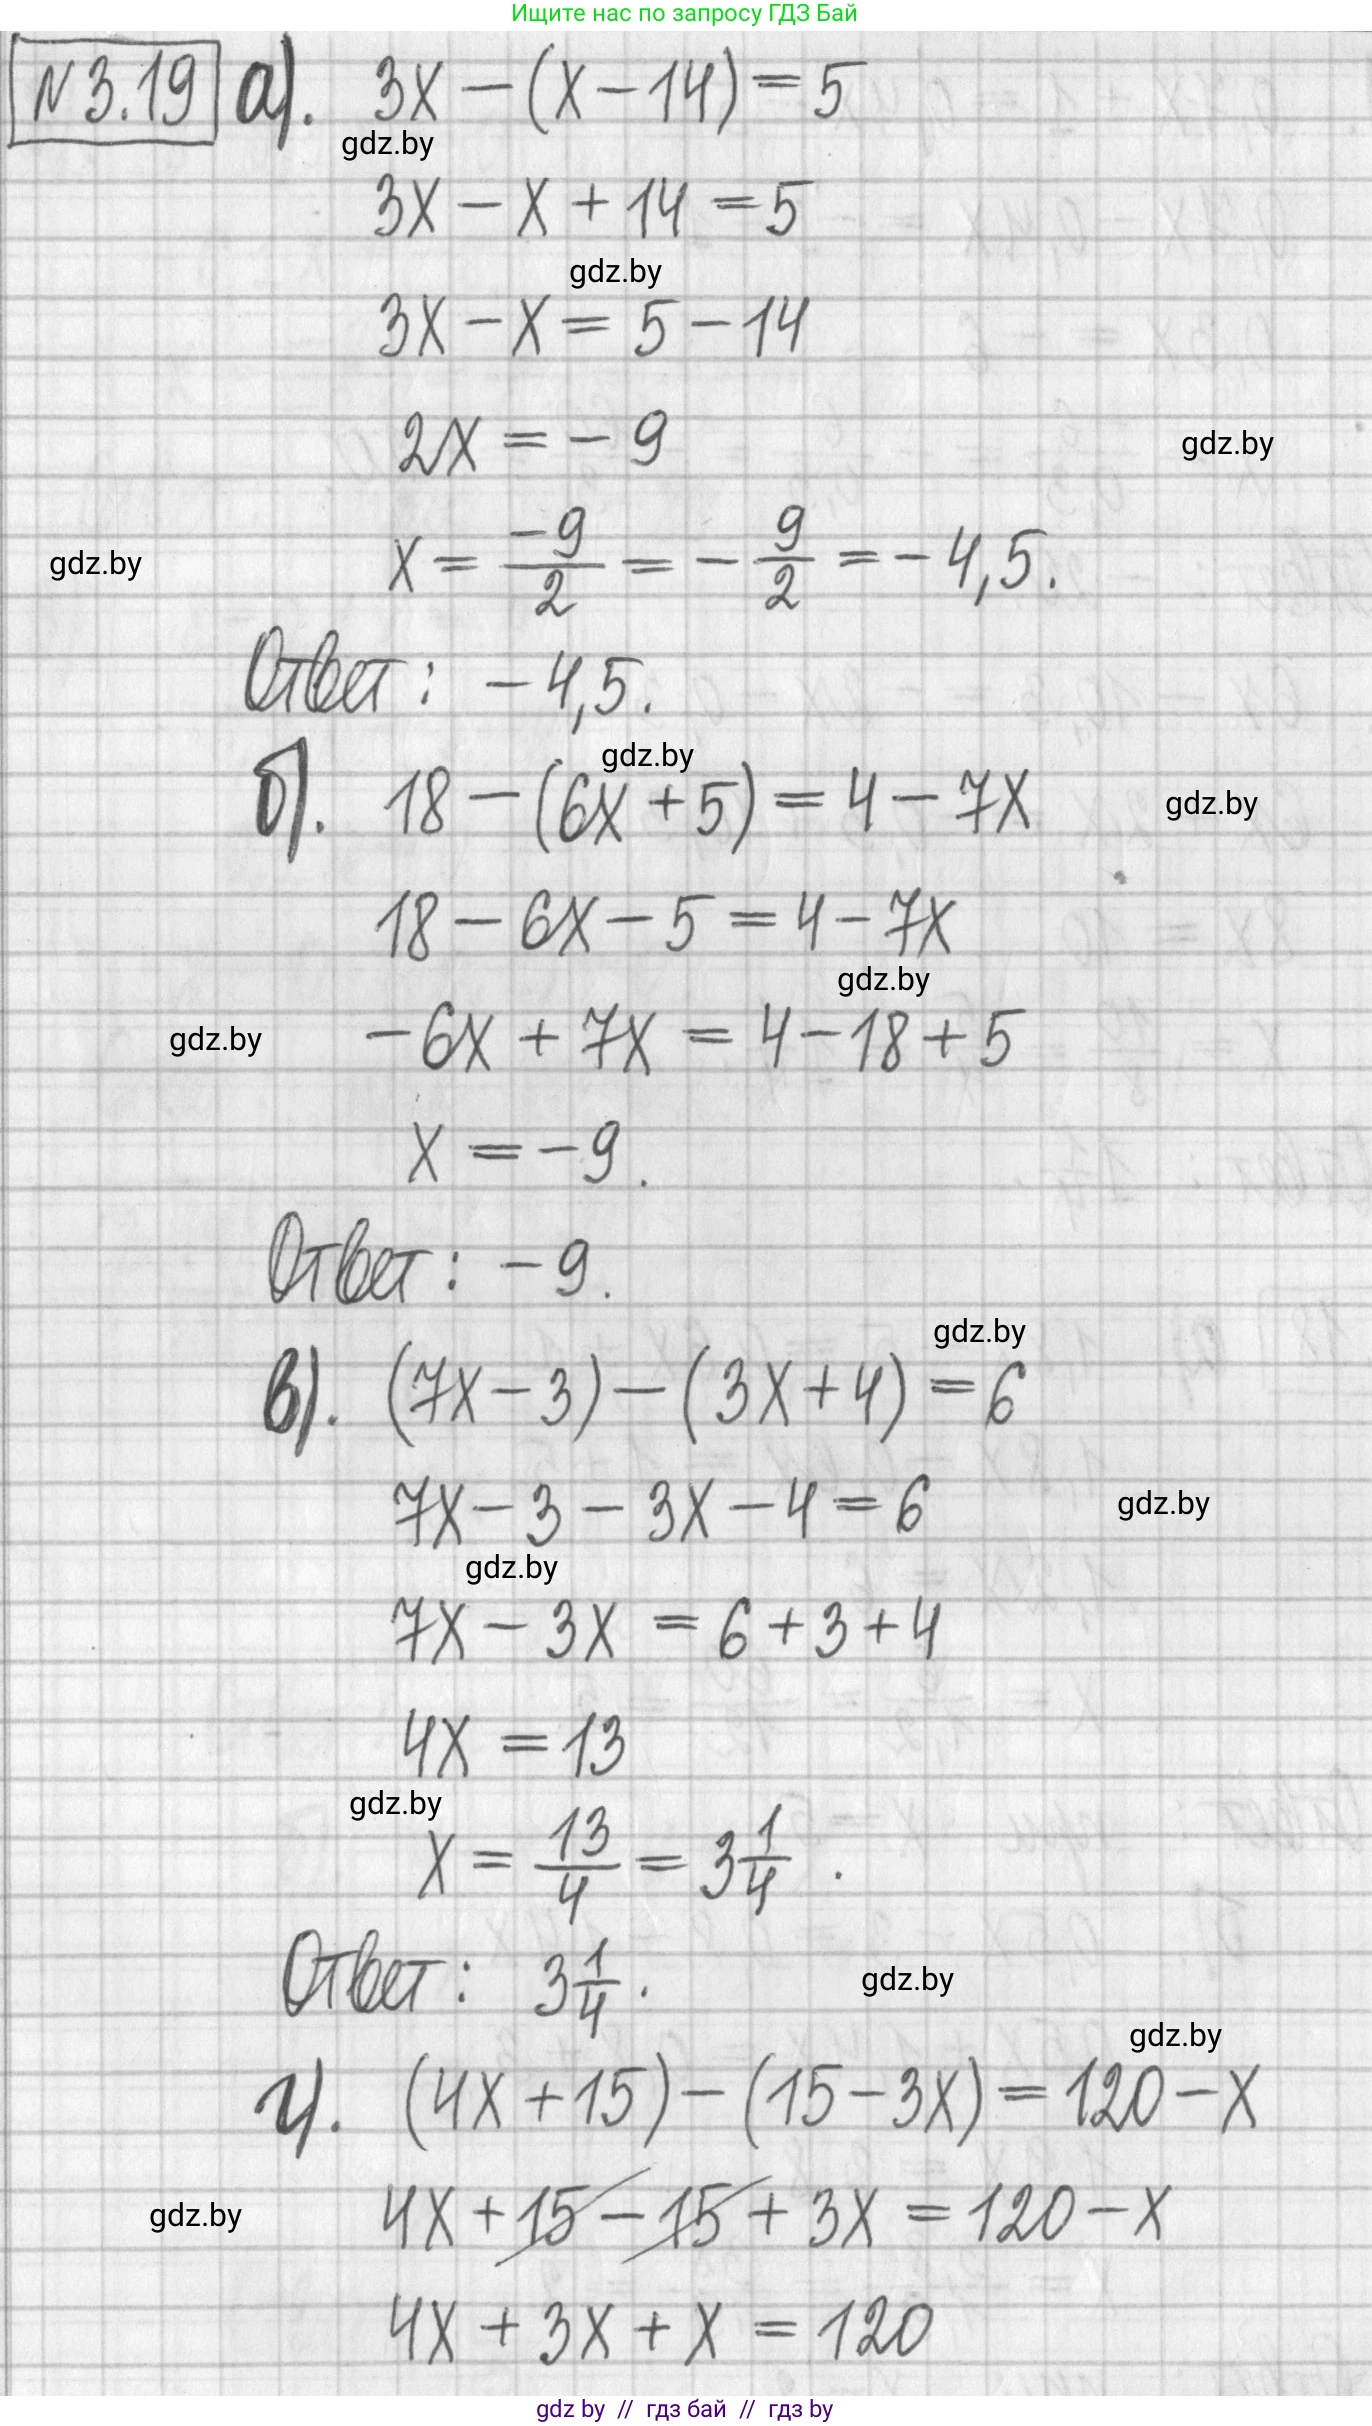 Ищите нас по запросу ГДЗ Бай
N3.19 а). 3x - (x - 14) = 5
gdz.by
3x - x + 14 = 5
gdz.by
3x - x = 5 - 14
2x = -9
gdz.by
x = \frac{-9}{2} = -\frac{9}{2} = -4,5.
gdz.by
Ответ: -4,5.
gdz.by
б). 18 - (6x + 5) = 4 - 7x
gdz.by
18 - 6x - 5 = 4 - 7x
gdz.by
-6x + 7x = 4 - 18 + 5
gdz.by
x = -9.
Ответ: -9.
gdz.by
в). (7x - 3) - (3x + 4) = 6
7x - 3 - 3x - 4 = 6
gdz.by
gdz.by
7x - 3x = 6 + 3 + 4
4x = 13
gdz.by
x = \frac{13}{4} = 3\frac{1}{4}.
Ответ: 3\frac{1}{4}.
gdz.by
gdz.by
г). (4x + 15) - (15 - 3x) = 120 - x
4x + 15 - 15 + 3x = 120 - x
gdz.by
4x + 3x + x = 120
gdz by // гдз бай // гдз by